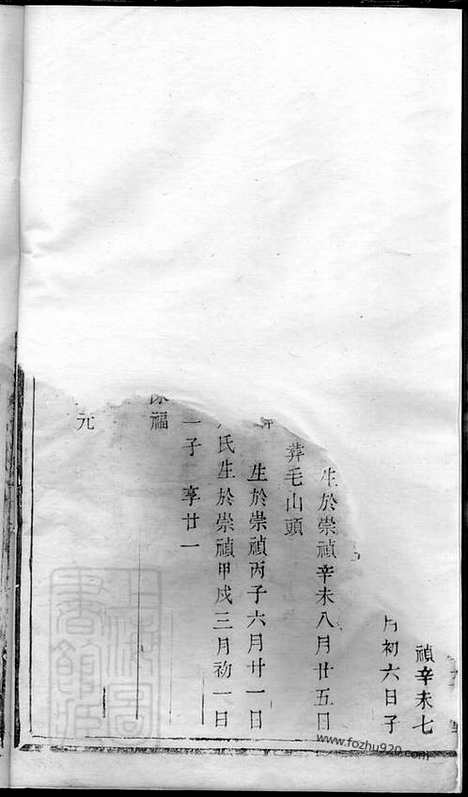 禎辛未七
月初六日子
生於崇禎辛未八月廿五日
葬毛山頭
生於崇禎丙子六月廿一日
氏生於崇禎甲戌三月初一日
一子 享廿一
福
元
www.fozhu920.com